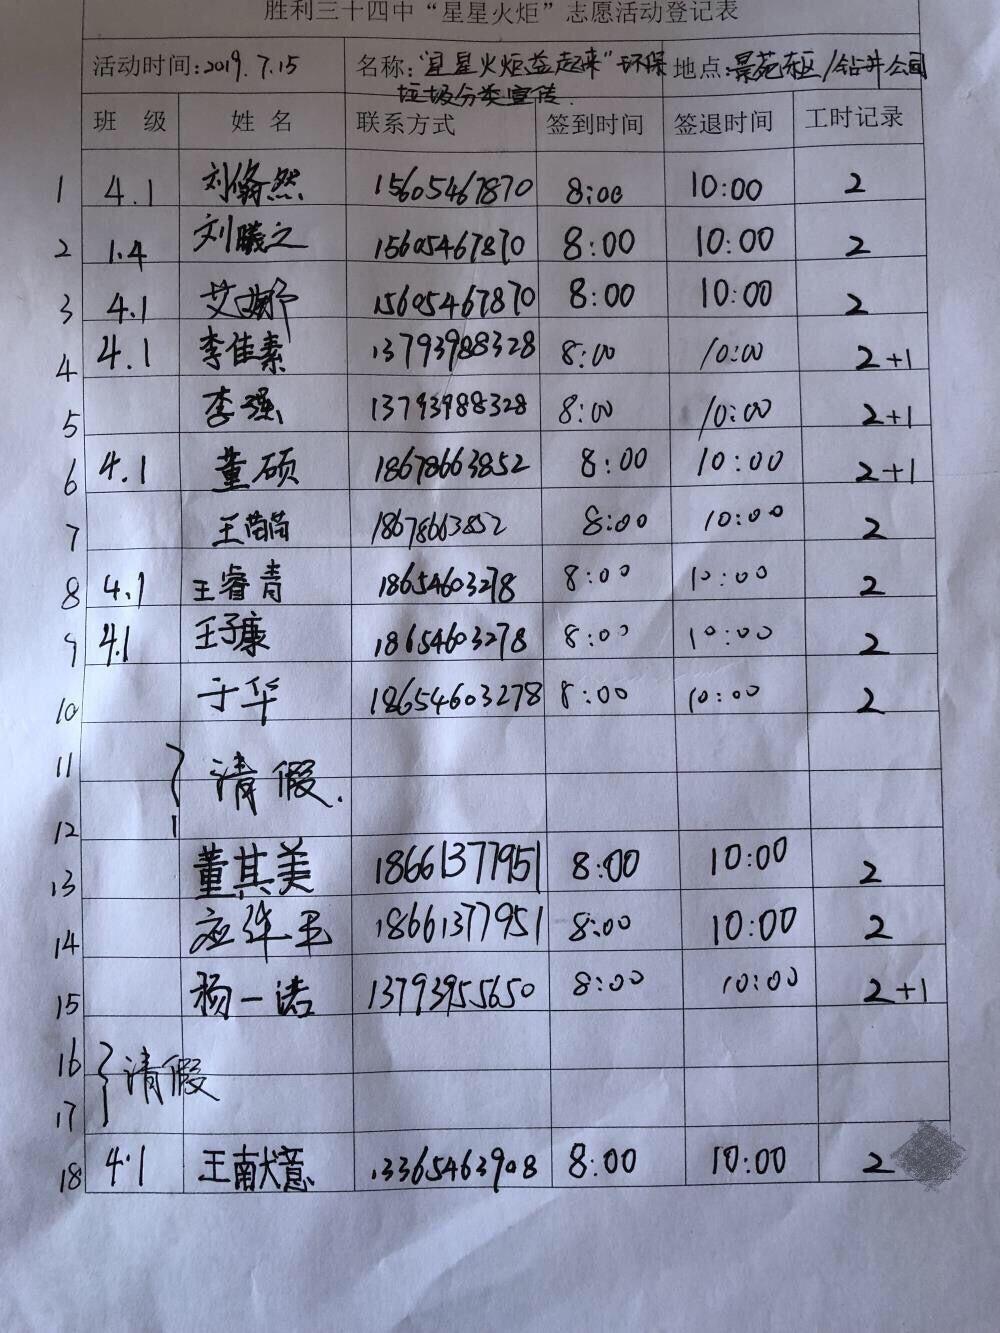 胜利三十四中“星星火炬”志愿活动登记表
活动时间:2019.7.15 名称:“星星火炬益起来”环保 地点:景苑东区/钻井公司
垃圾分类宣传.
班 级 姓 名 联系方式 签到时间 签退时间 工时记录
1 4.1 刘翛然 15605467870 8:00 10:00 2
2 1.4 刘曦之 15605467870 8:00 10:00 2
3 4.1 艾 15605467870 8:00 10:00 2
4 4.1 李佳素 13793988328 8:00 10:00 2+1
5 李强 13793988328 8:00 10:00 2+1
6 4.1 董硕 18678663852 8:00 10:00 2+1
7 王茜茜 18678663852 8:00 10:00 2
8 4.1 王睿青 18654603278 8:00 10:00 2
9 4.1 王子康 18654603278 8:00 10:00 2
10 于华 18654603278 8:00 10:00 2
11
请假.
12
13 董其美 18661377951 8:00 10:00 2
14 18661377951 8:00 10:00 2
15 杨一诺 13793955650 8:00 10:00 2+1
16
请假
17
18 4.1 王南意 13365463908 8:00 10:00 2